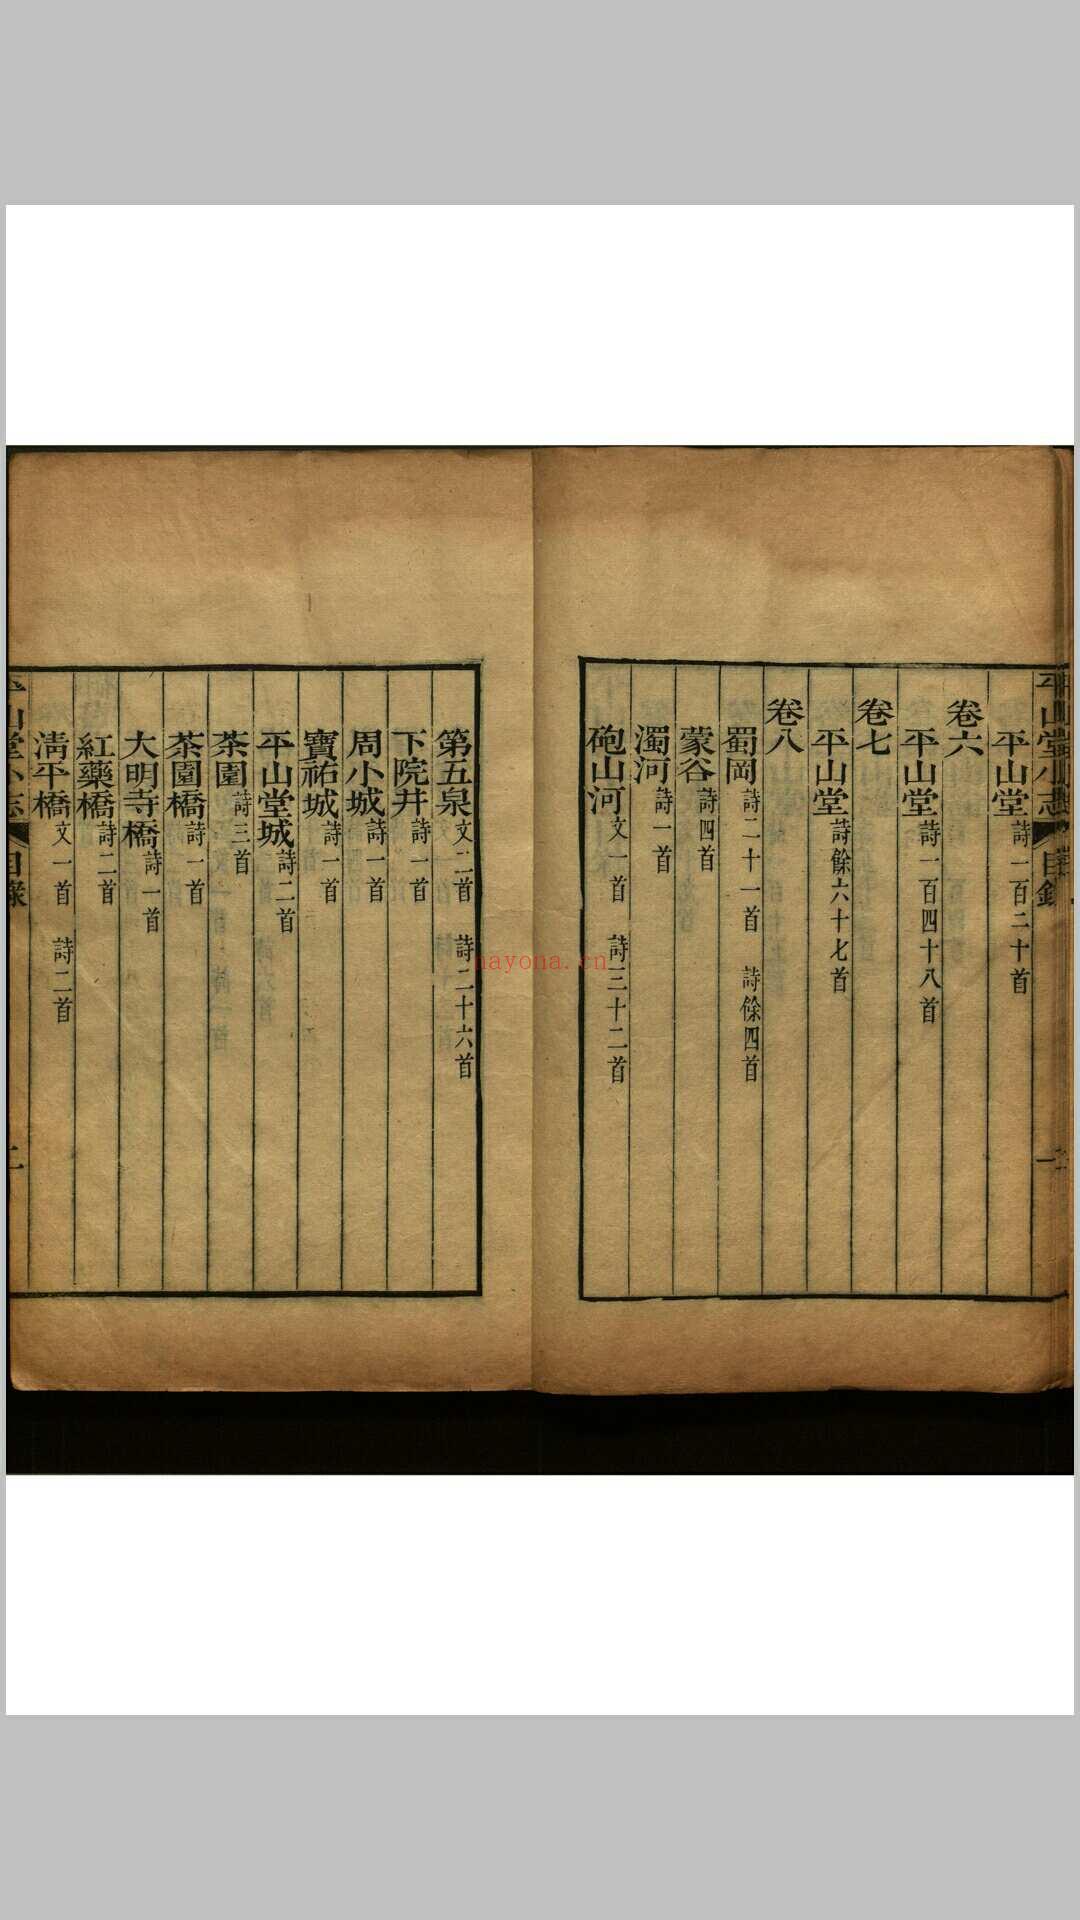 平山堂小志 目錄 一
平山堂 詩一百二十首
卷六
平山堂 詩一百四十八首
卷七
平山堂 詩餘六十七首
卷八
蜀岡 詩二十一首 詩餘四首
蒙谷 詩四首
濁河 詩一首
砲山河 文一首 詩三十二首
第五泉 文二首 詩二十六首
下院井 詩一首
周小城 詩一首
寶祐城 詩一首
平山堂城 詩二首
茶園 詩三首
茶園橋 詩一首
大明寺橋 詩一首
紅藥橋 詩二首
清平橋 文一首 詩二首
平山堂小志 目錄 二
nayona.cn